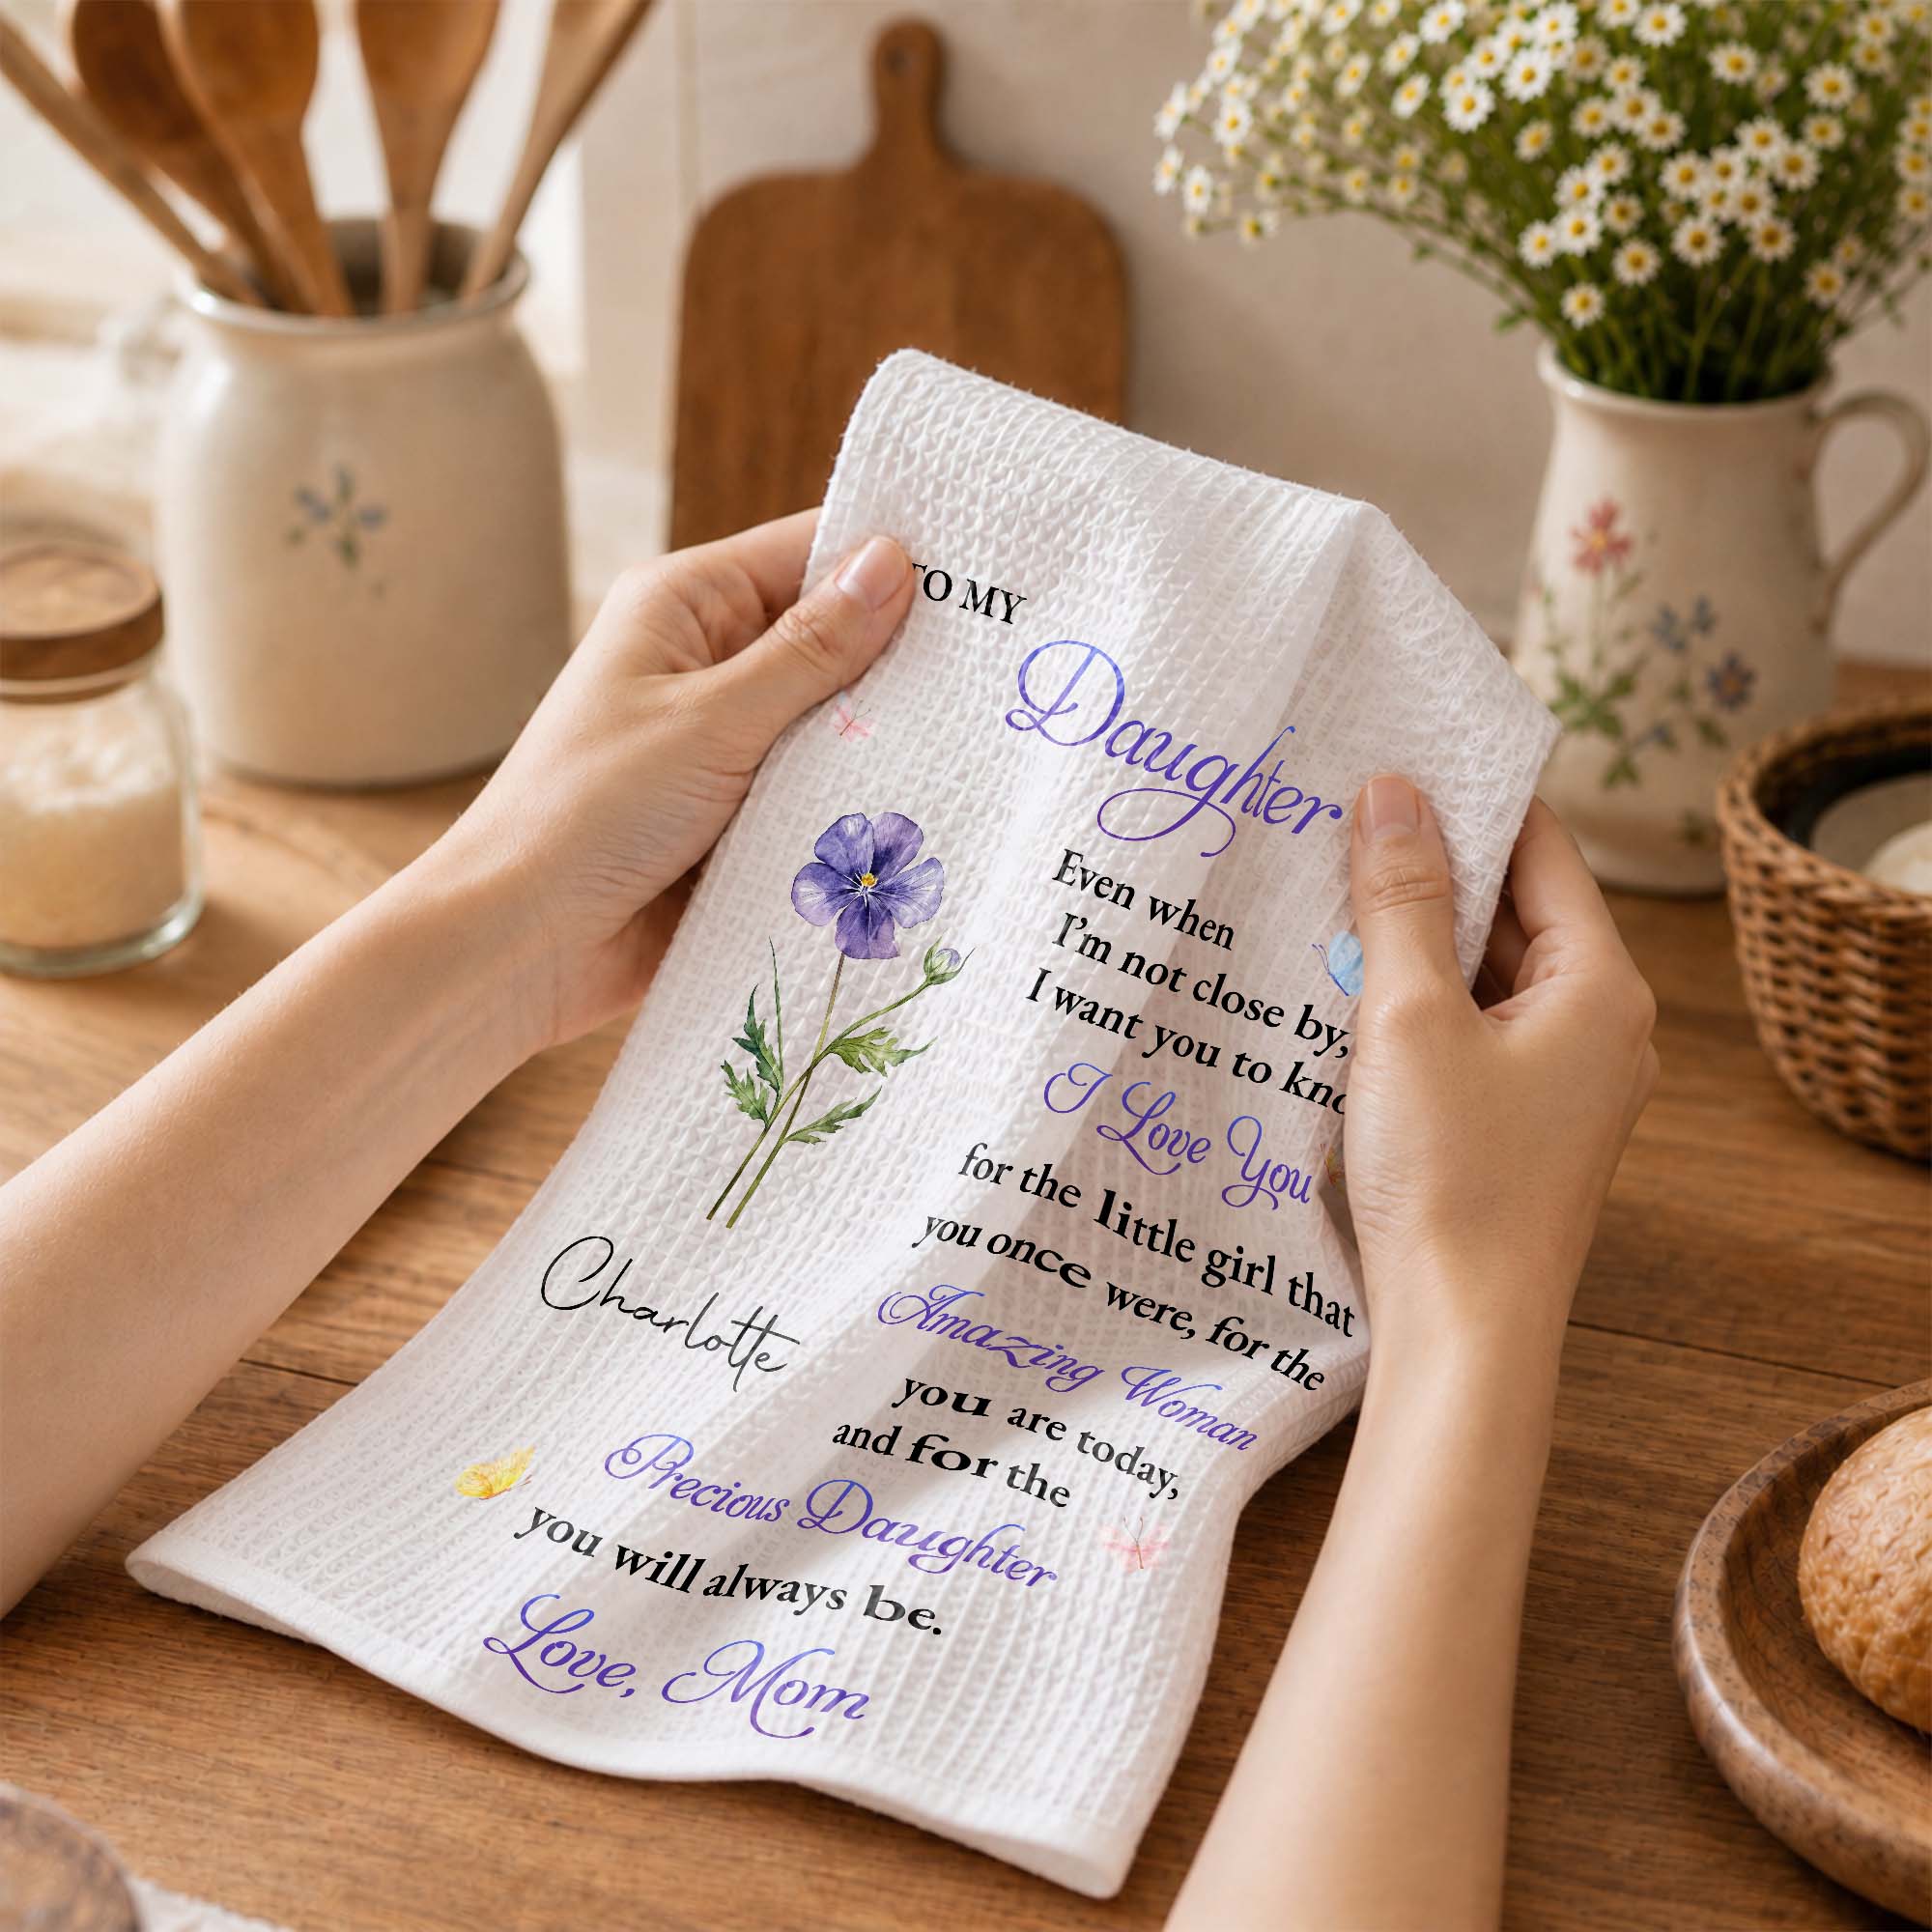 TO MY
Daughter
Even when
I'm not close by,
I want you to kno
I Love You
for the little girl that
you once were, for the
Amazing Woman
you are today,
and for the
Precious Daughter
you will always be.
Love, Mom
Charlotte